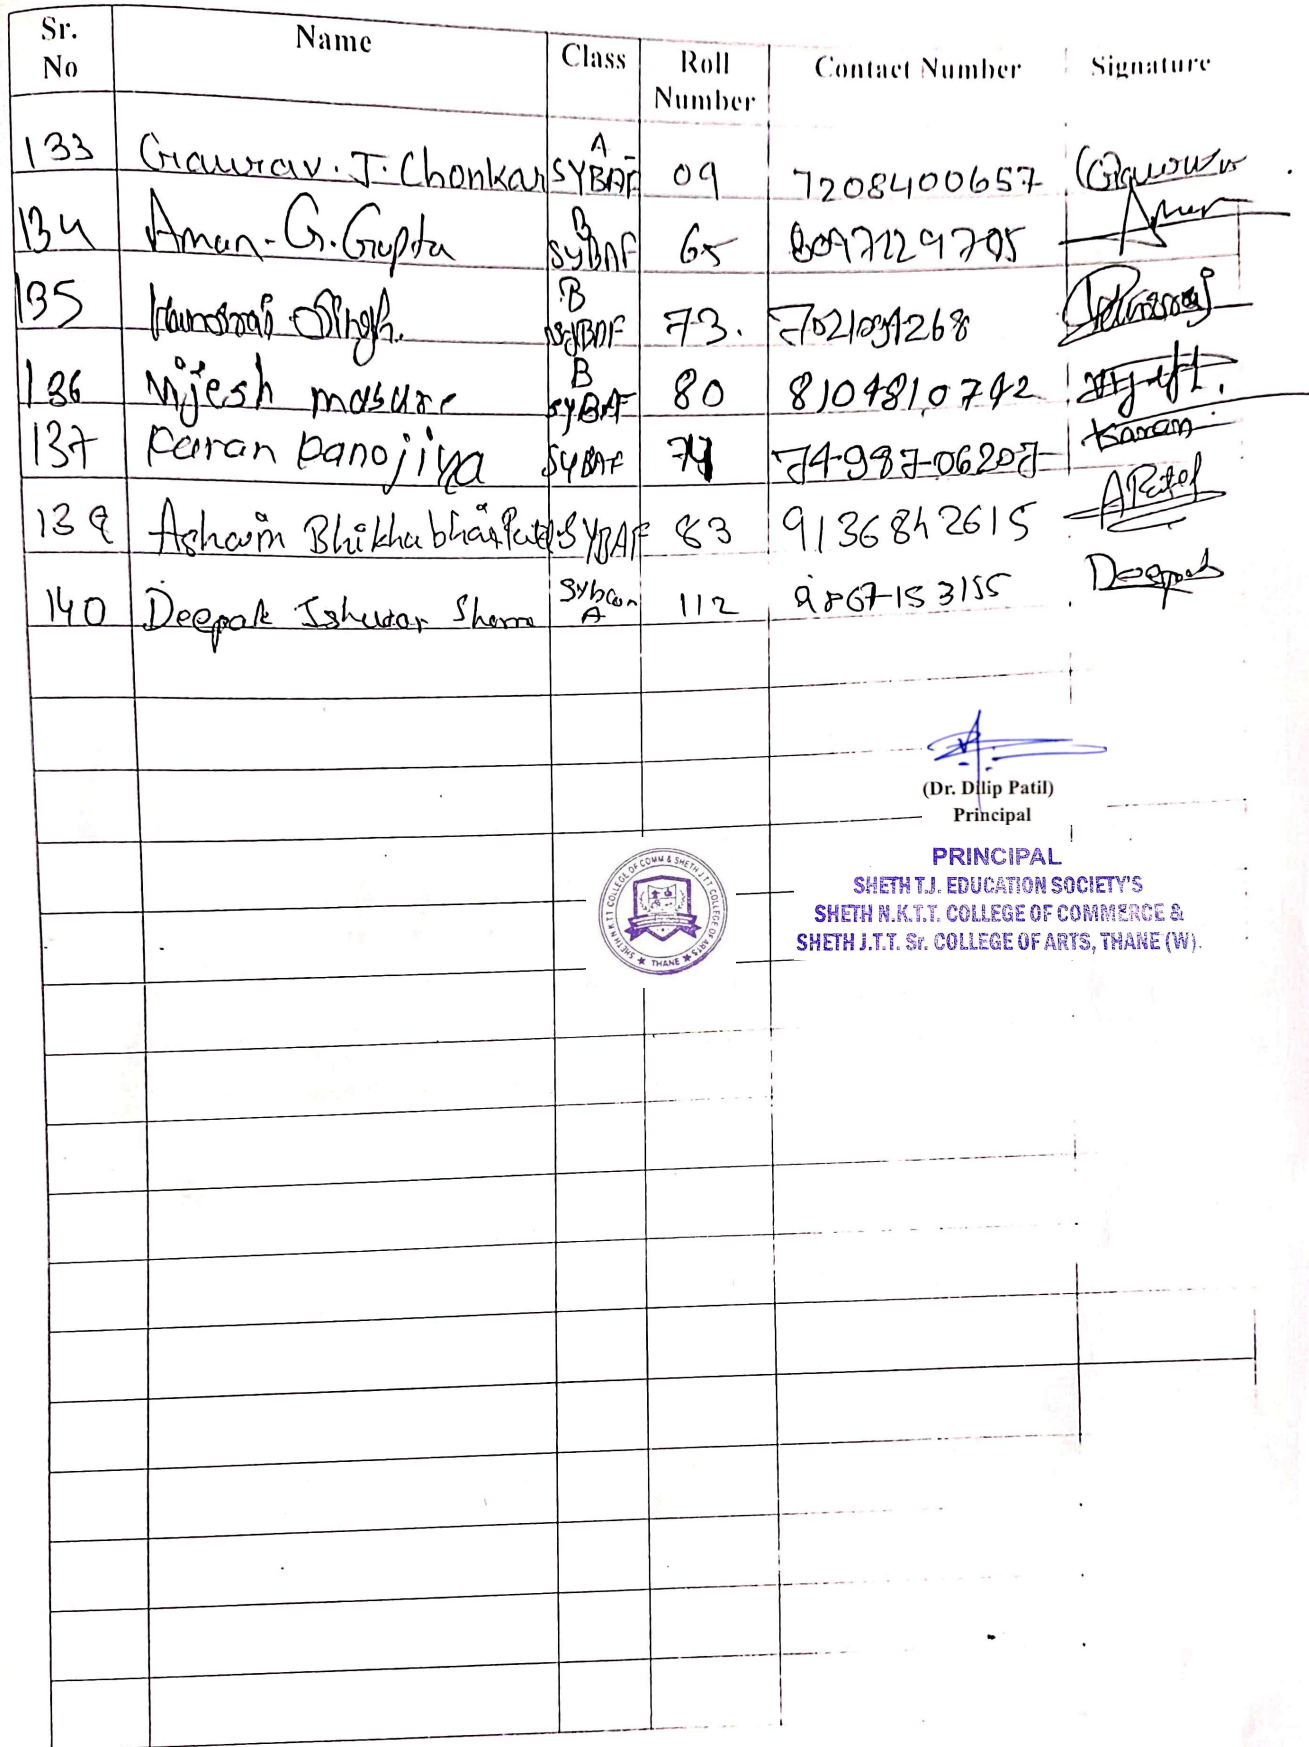 Sr. No Name Class Roll Number Contact Number Signature
133 Gaurav. J. Chonkar A SYBAF 09 7208400657 Gaurav
134 Aman. G. Gupta B SYBAF 65 8097129705 Aman
135 Hansraj Singh. B SYBAF 73. Hansraj
136 Nijesh masure B SYBAF 80 8104810742
137 Karan Danojiya SYBAF 74 74987-06207 Karan
139 Bhikhabhai Patel SYBAF 83 9136842615 APatel
140 Deepak Ishwar Sharma Sybcom A 112 9867153155 Deepak
(Dr. Dilip Patil)
Principal
PRINCIPAL
SHETH T.J. EDUCATION SOCIETY'S
SHETH N.K.T.T. COLLEGE OF COMMERCE &
SHETH J.T.T. Sr. COLLEGE OF ARTS, THANE (W).
SHETH N.K.T.T COLLEGE OF COMM & SHETH J.T.T COLLEGE OF ARTS
★ THANE ★